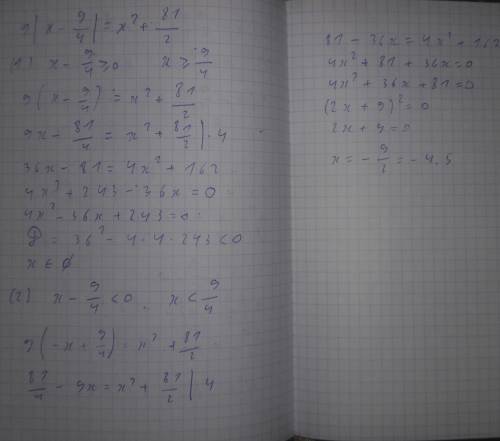 9|x - 9/4| = x² + 81/2
(1) x - 9/4 ≥ 0    x ≥ 9/4
9(x - 9/4) = x² + 81/2
9x - 81/4 = x² + 81/2 | · 4
36x - 81 = 4x² + 162
4x² + 243 - 36x = 0
4x² - 36x + 243 = 0
D = 36² - 4 · 4 · 243 < 0
x ∈ ∅
(2) x - 9/4 < 0,   x < 9/4
9(-x + 9/4) = x² + 81/2
81/4 - 9x = x² + 81/2 | · 4
81 - 36x = 4x² + 162
4x² + 81 + 36x = 0
4x² + 36x + 81 = 0
(2x + 9)² = 0
2x + 9 = 0
x = - 9/2 = - 4.5